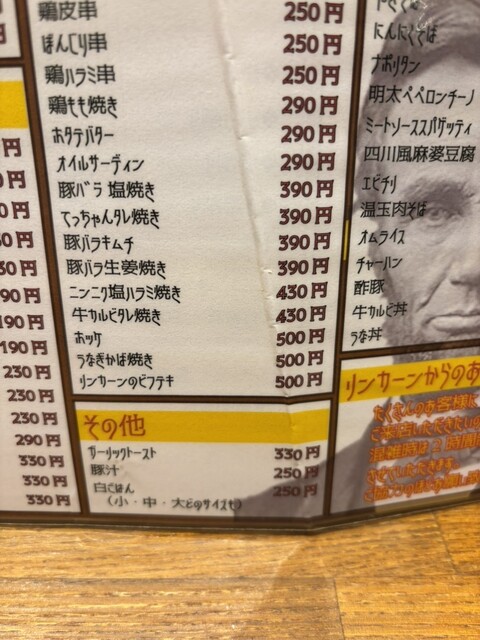 鶏皮串 250円
ぼんじり串 250円
鶏ハラミ串 250円
鶏もも焼き 290円
ホタテバター 290円
オイルサーディン 290円
豚バラ 塩焼き 390円
てっちゃんタレ焼き 390円
豚バラキムチ 390円
豚バラ生姜焼き 390円
ニンニク塩ハラミ焼き 430円
牛カルビタレ焼き 430円
ホッケ 500円
うなぎかば焼き 500円
リンカーンのビフテキ 500円
その他
ガーリックトースト 330円
豚汁 250円
白ごはん 250円
(小・中・大どのサイズも)
円
円
0円
0円
30円
90円
190円
190円
230円
230円
230円
290円
330円
330円
330円
にんにくそば
ナポリタン
明太ペペロンチーノ
ミートソーススパゲッティ
四川風麻婆豆腐
エビチリ
温玉肉そば
オムライス
チャーハン
酢豚
牛カルビ丼
うな丼
リンカーンからのお
たくさんのお客様に
ご来店いただきたいの
混雑時は2時間
させていただきます